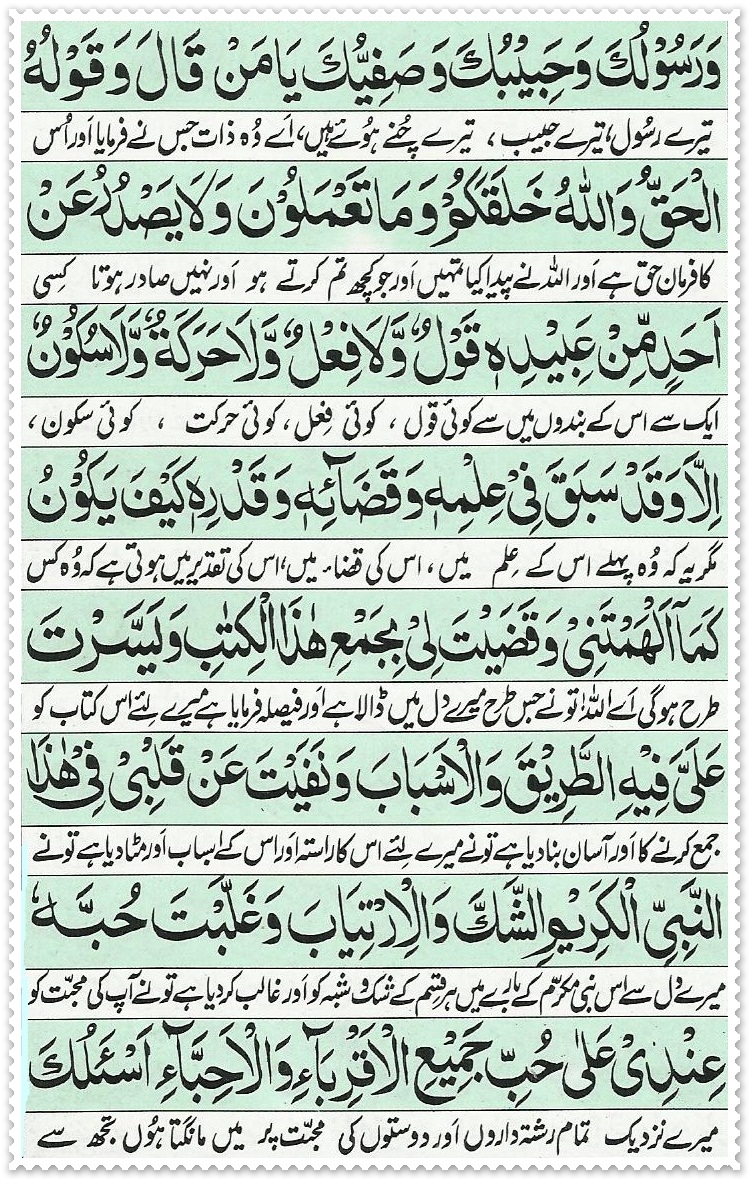 وَرَسُوْلُكَ وَحَبِيْبُكَ وَصَفِيُّكَ يَامَنْ قَالَ وَقَوْلُهُ
تیرے رسُول، تیرے حبیب ، تیرے چُنے ہوُئے ہیں، اَے وُہ ذات جس نے فرمایا اَور اُس
الْحَقُّ وَاللّٰهُ خَلَقَكُمْ وَمَا تَعْمَلُوْنَ وَلَا يَصْدُرُ عَنْ
کا فرمان حق ہے اَور اللہ نے پیدا کیا تمہیں اَور جو کچھ تم کرتے ہو اَور نہیں صادر ہوتا کِسی
اَحَدٍ مِّنْ عَبِيْدِهٖ قَوْلٌ وَّلَا فِعْلٌ وَّلَا حَرَكَةٌ وَّلَا سُكُوْنٌ
ایک سے اس کے بندوں میں سے کوئی قول ، کوئی فعل ، کوئی حرکت ، کوئی سکون ،
اِلَّا وَقَدْ سَبَقَ فِيْ عِلْمِهٖ وَقَضَآئِهٖ وَقَدْرِهٖ كَيْفَ يَكُوْنُ
مگر یہ کہ وُہ پہلے اس کے عِلم میں ، اس کی قضاء میں، اس کی تقدیر میں ہوتی ہے کہ وُہ کس
كَمَآ اَلْهَمْتَنِيْ وَقَضَيْتَ لِيْ بِجَمْعِ هٰذَا الْكِتٰبِ وَيَسَّرْتَ
طرح ہوگی اَے اللہ! تو نے جس طرح میرے دل میں ڈالا ہے اَور فیصلہ فرمایا ہے میرے لئے اس کتاب کو
عَلَيَّ فِيْهِ الطَّرِيْقَ وَالْاَسْبَابَ وَنَفَيْتَ عَنْ قَلْبِيْ فِيْ هٰذَا
جمع کرنے کا اَور آسان بنا دیا ہے تو نے میرے لئے اس کا راستہ اَور اس کے اسباب اَور مٹا دیا ہے تو نے
النَّبِيِّ الْكَرِيْمِ الشَّكَّ وَالْاِرْتِيَابَ وَغَلَّبْتَ حُبَّهٗ
میرے دل سے اس نبی مکرّم کے بارے میں ہر قسم کے شک و شبہ کو اَور غالب کر دیا ہے تو نے آپ کی محبّت کو
عِنْدِيْ عَلٰى حُبِّ جَمِيْعِ الْاَقْرِبَآءِ وَالْاَحِبَّآءِ اَسْئَلُكَ
میرے نزدیک تمام رشتہ داروں اَور دوستوں کی محبّت پر میں مانگتا ہُوں تجھ سے